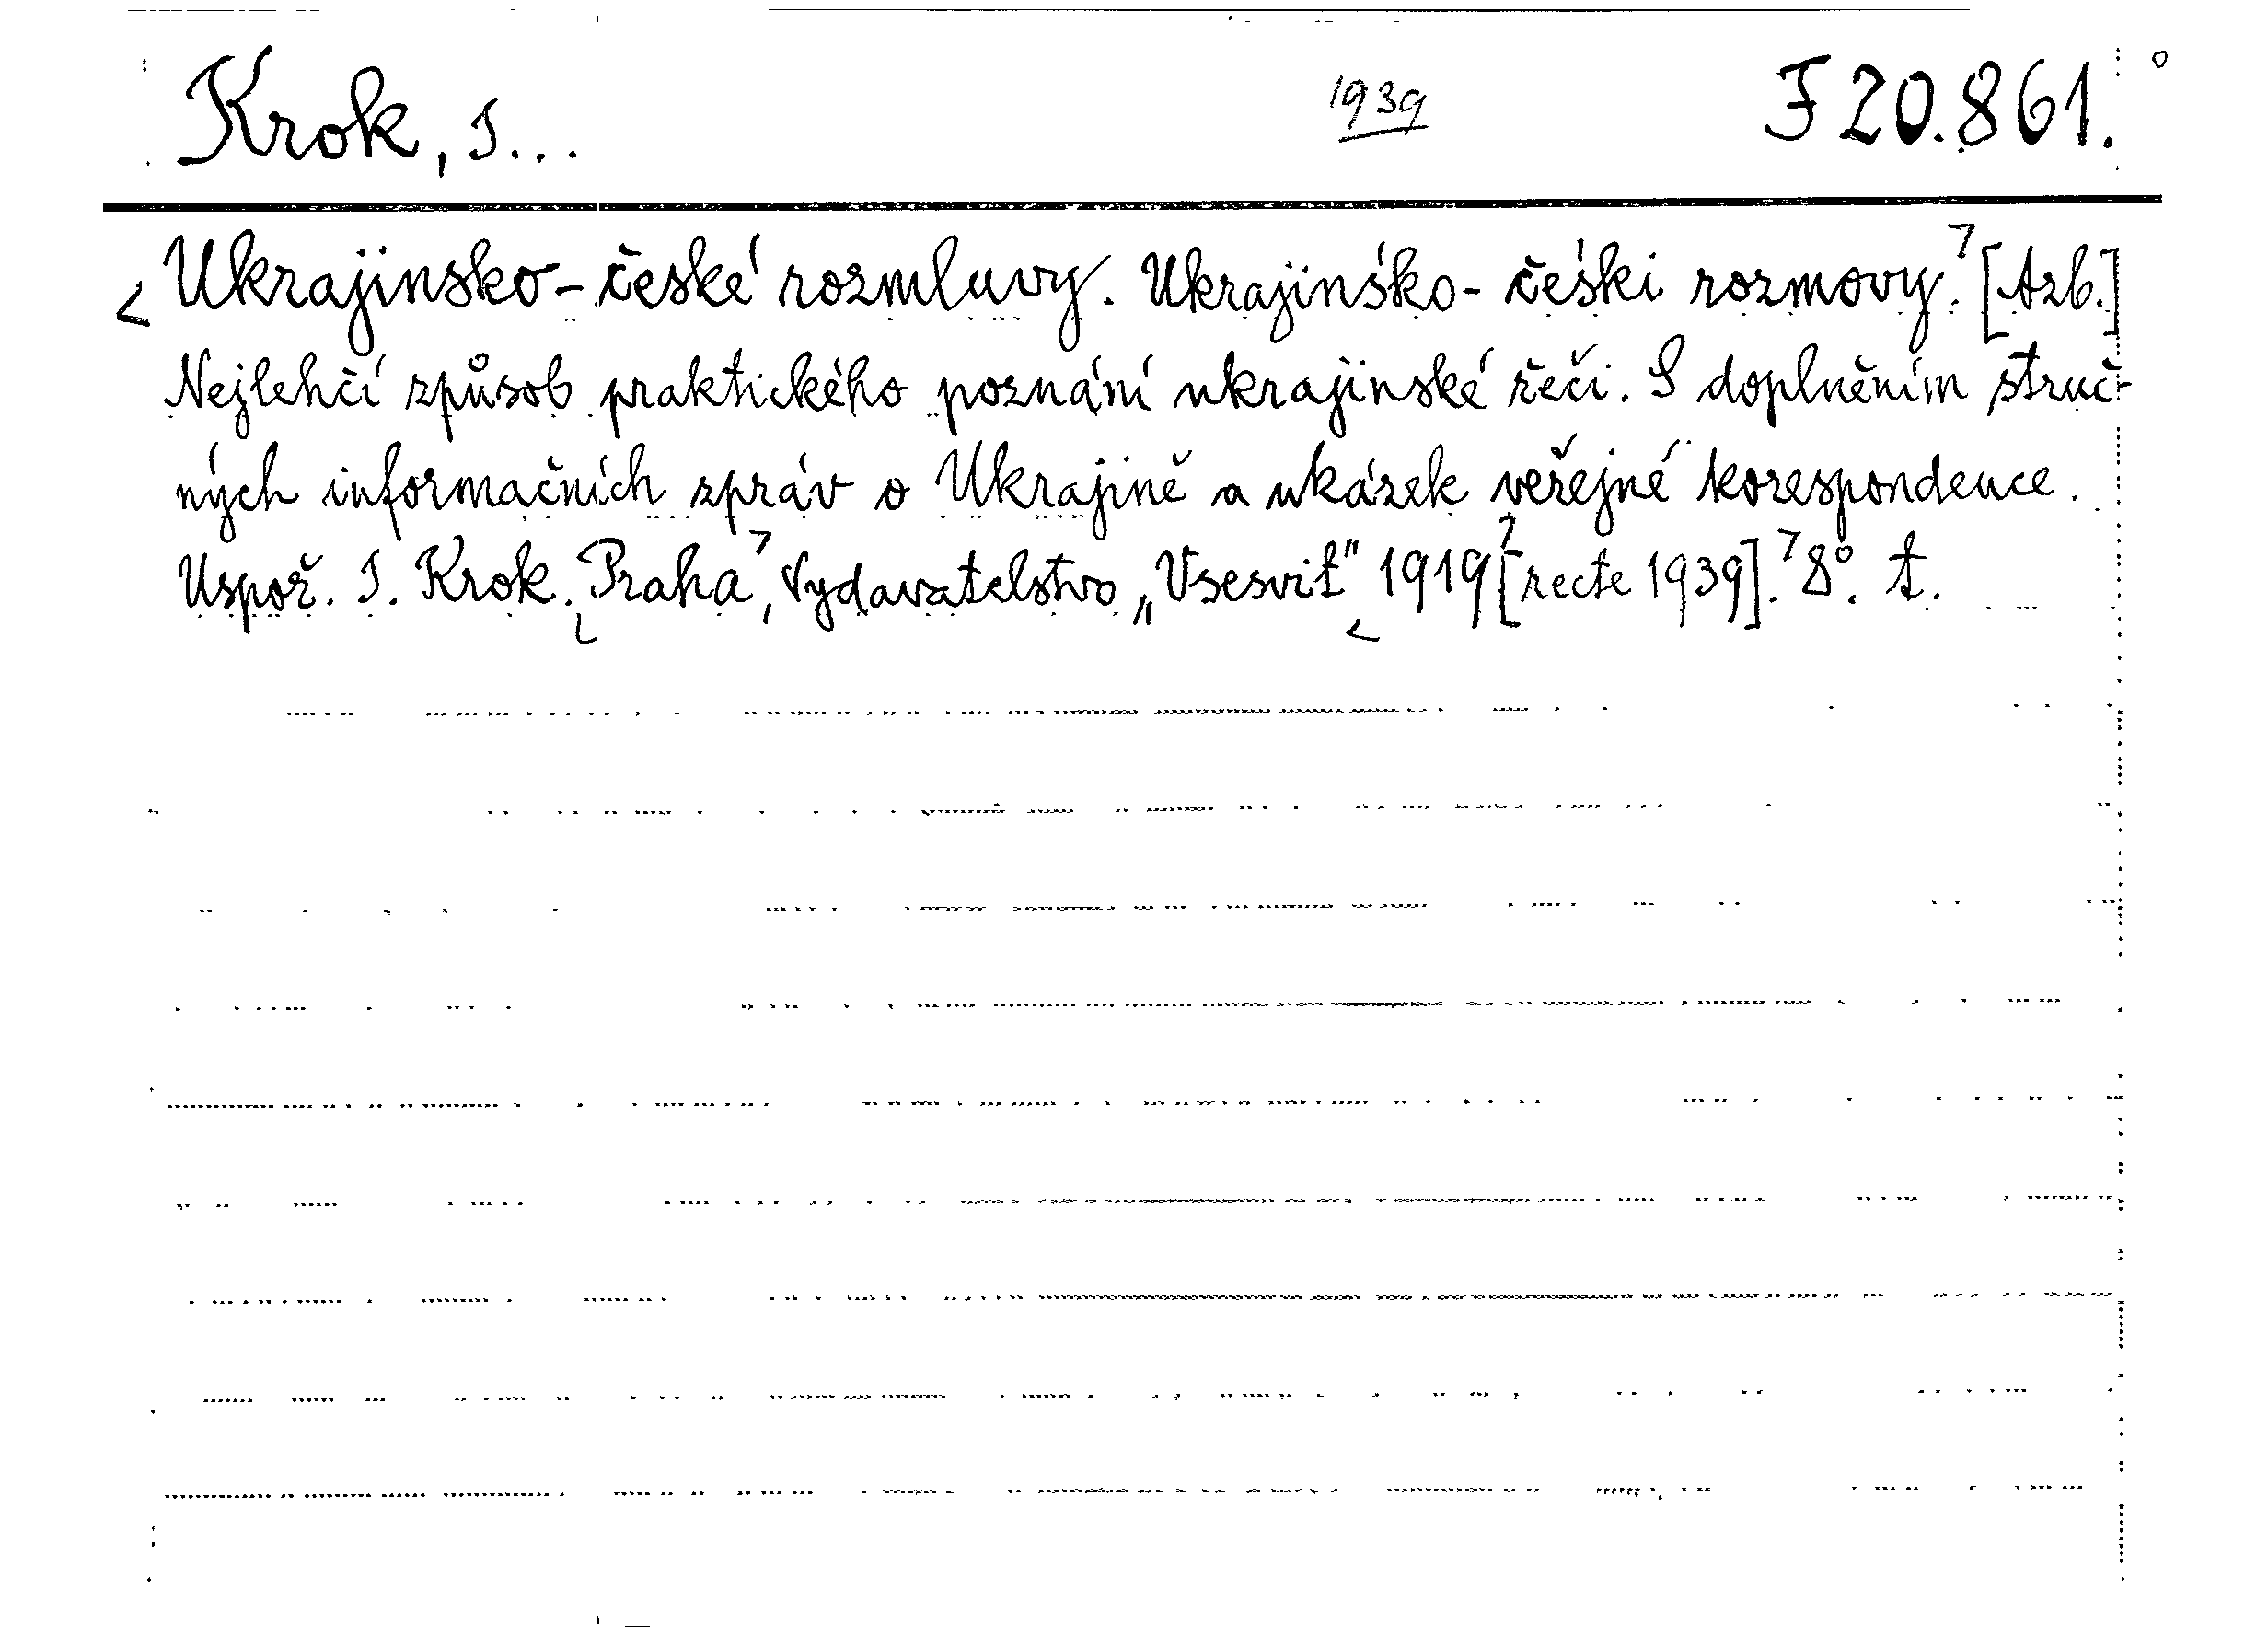 Krok, I... 1939 F 20.861.
Ukrajinsko-české rozmluvy. Ukrajinśko-čeśki rozmovy. [Azb.]
Nejlehčí způsob praktického poznání ukrajinské řeči. S doplněním struč-
ných informačních zpráv o Ukrajině a ukázek veřejné korespondence.
Uspoř. I. Krok. Praha, Vydavatelstvo „Vsesvit" 1919 [recte 1939]. 8°. t.